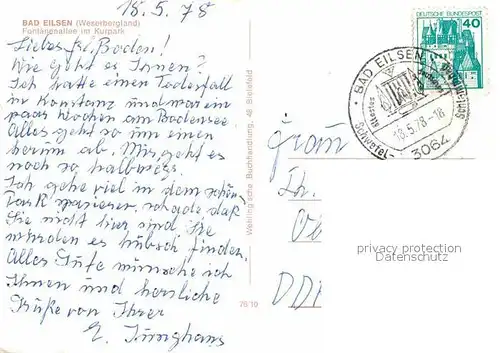 18.5.78
BAD EILSEN (Weserbergland)
Fontänenallee im Kurpark
Liebes Frl. Boden!
Wie geht es Ihnen?
Ich hatte einen Todesfall
in Konstanz und war ein
paar Wochen am Bodensee
Alles geht so um einen
herum ab. Mir geht es
noch so halbwegs.
Ich gehe viel in dem schön.
Park spazieren, schade daß
Sie nicht hier sind Sie
würden es hübsch finden.
Alles Gute wünsche ich
Ihnen und herzliche
Grüße von Ihrer
E. Junghans
Wehling'sche Buchhandlung, 48 Bielefeld
76/10
DEUTSCHE BUNDESPOST
40
BAD EILSEN
Schwefel-
Schlamm
18.5.78-18
3064
Frau
DDR
privacy protection
Datenschutz